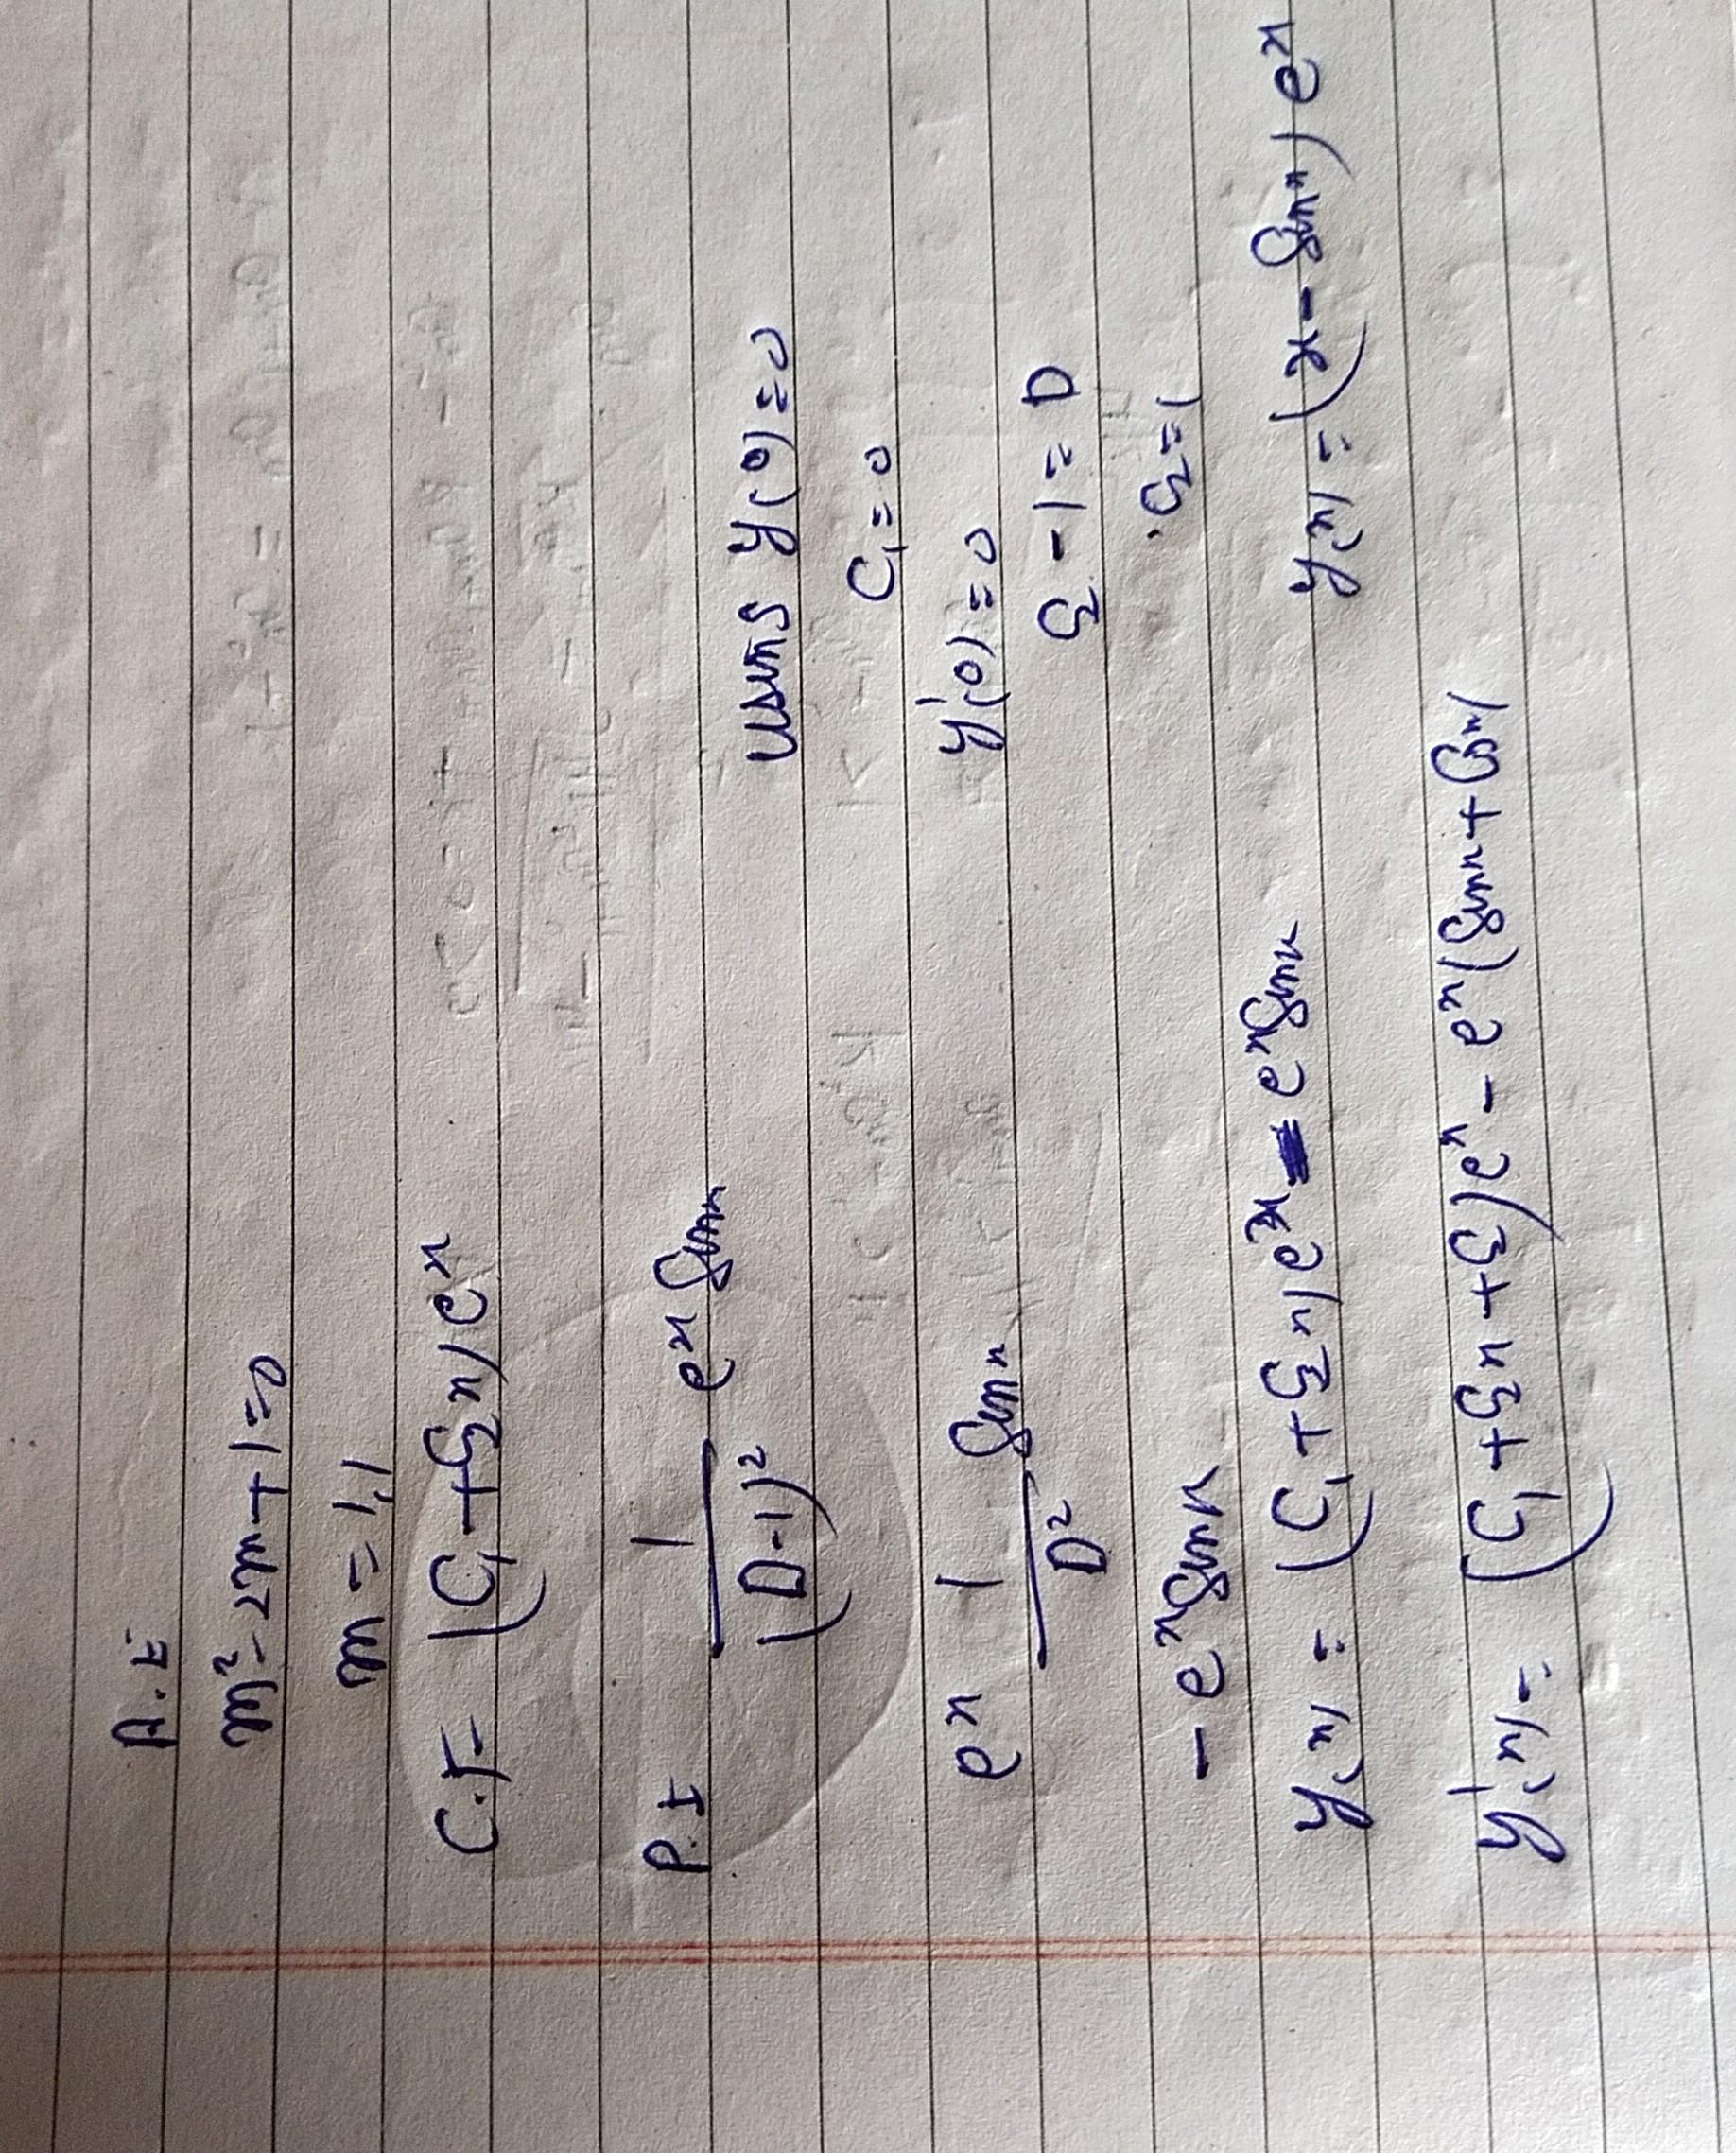 A.E
m² - 2m + 1 = 0
m = 1, 1
C.F = (C₁ + C₂x) eˣ
P.I 1/(D-1)² eˣ sin x
eˣ 1/D² sin x
- eˣ sin x
y(x) = (C₁ + C₂x) eˣ - eˣ sin x
y'(x) = (C₁ + C₂x + C₂) eˣ - eˣ (sin x + cos x)
using y(0) = 0
C₁ = 0
y'(0) = 0
C₂ - 1 = 0
C₂ = 1
y(x) = (x - sin x) eˣ